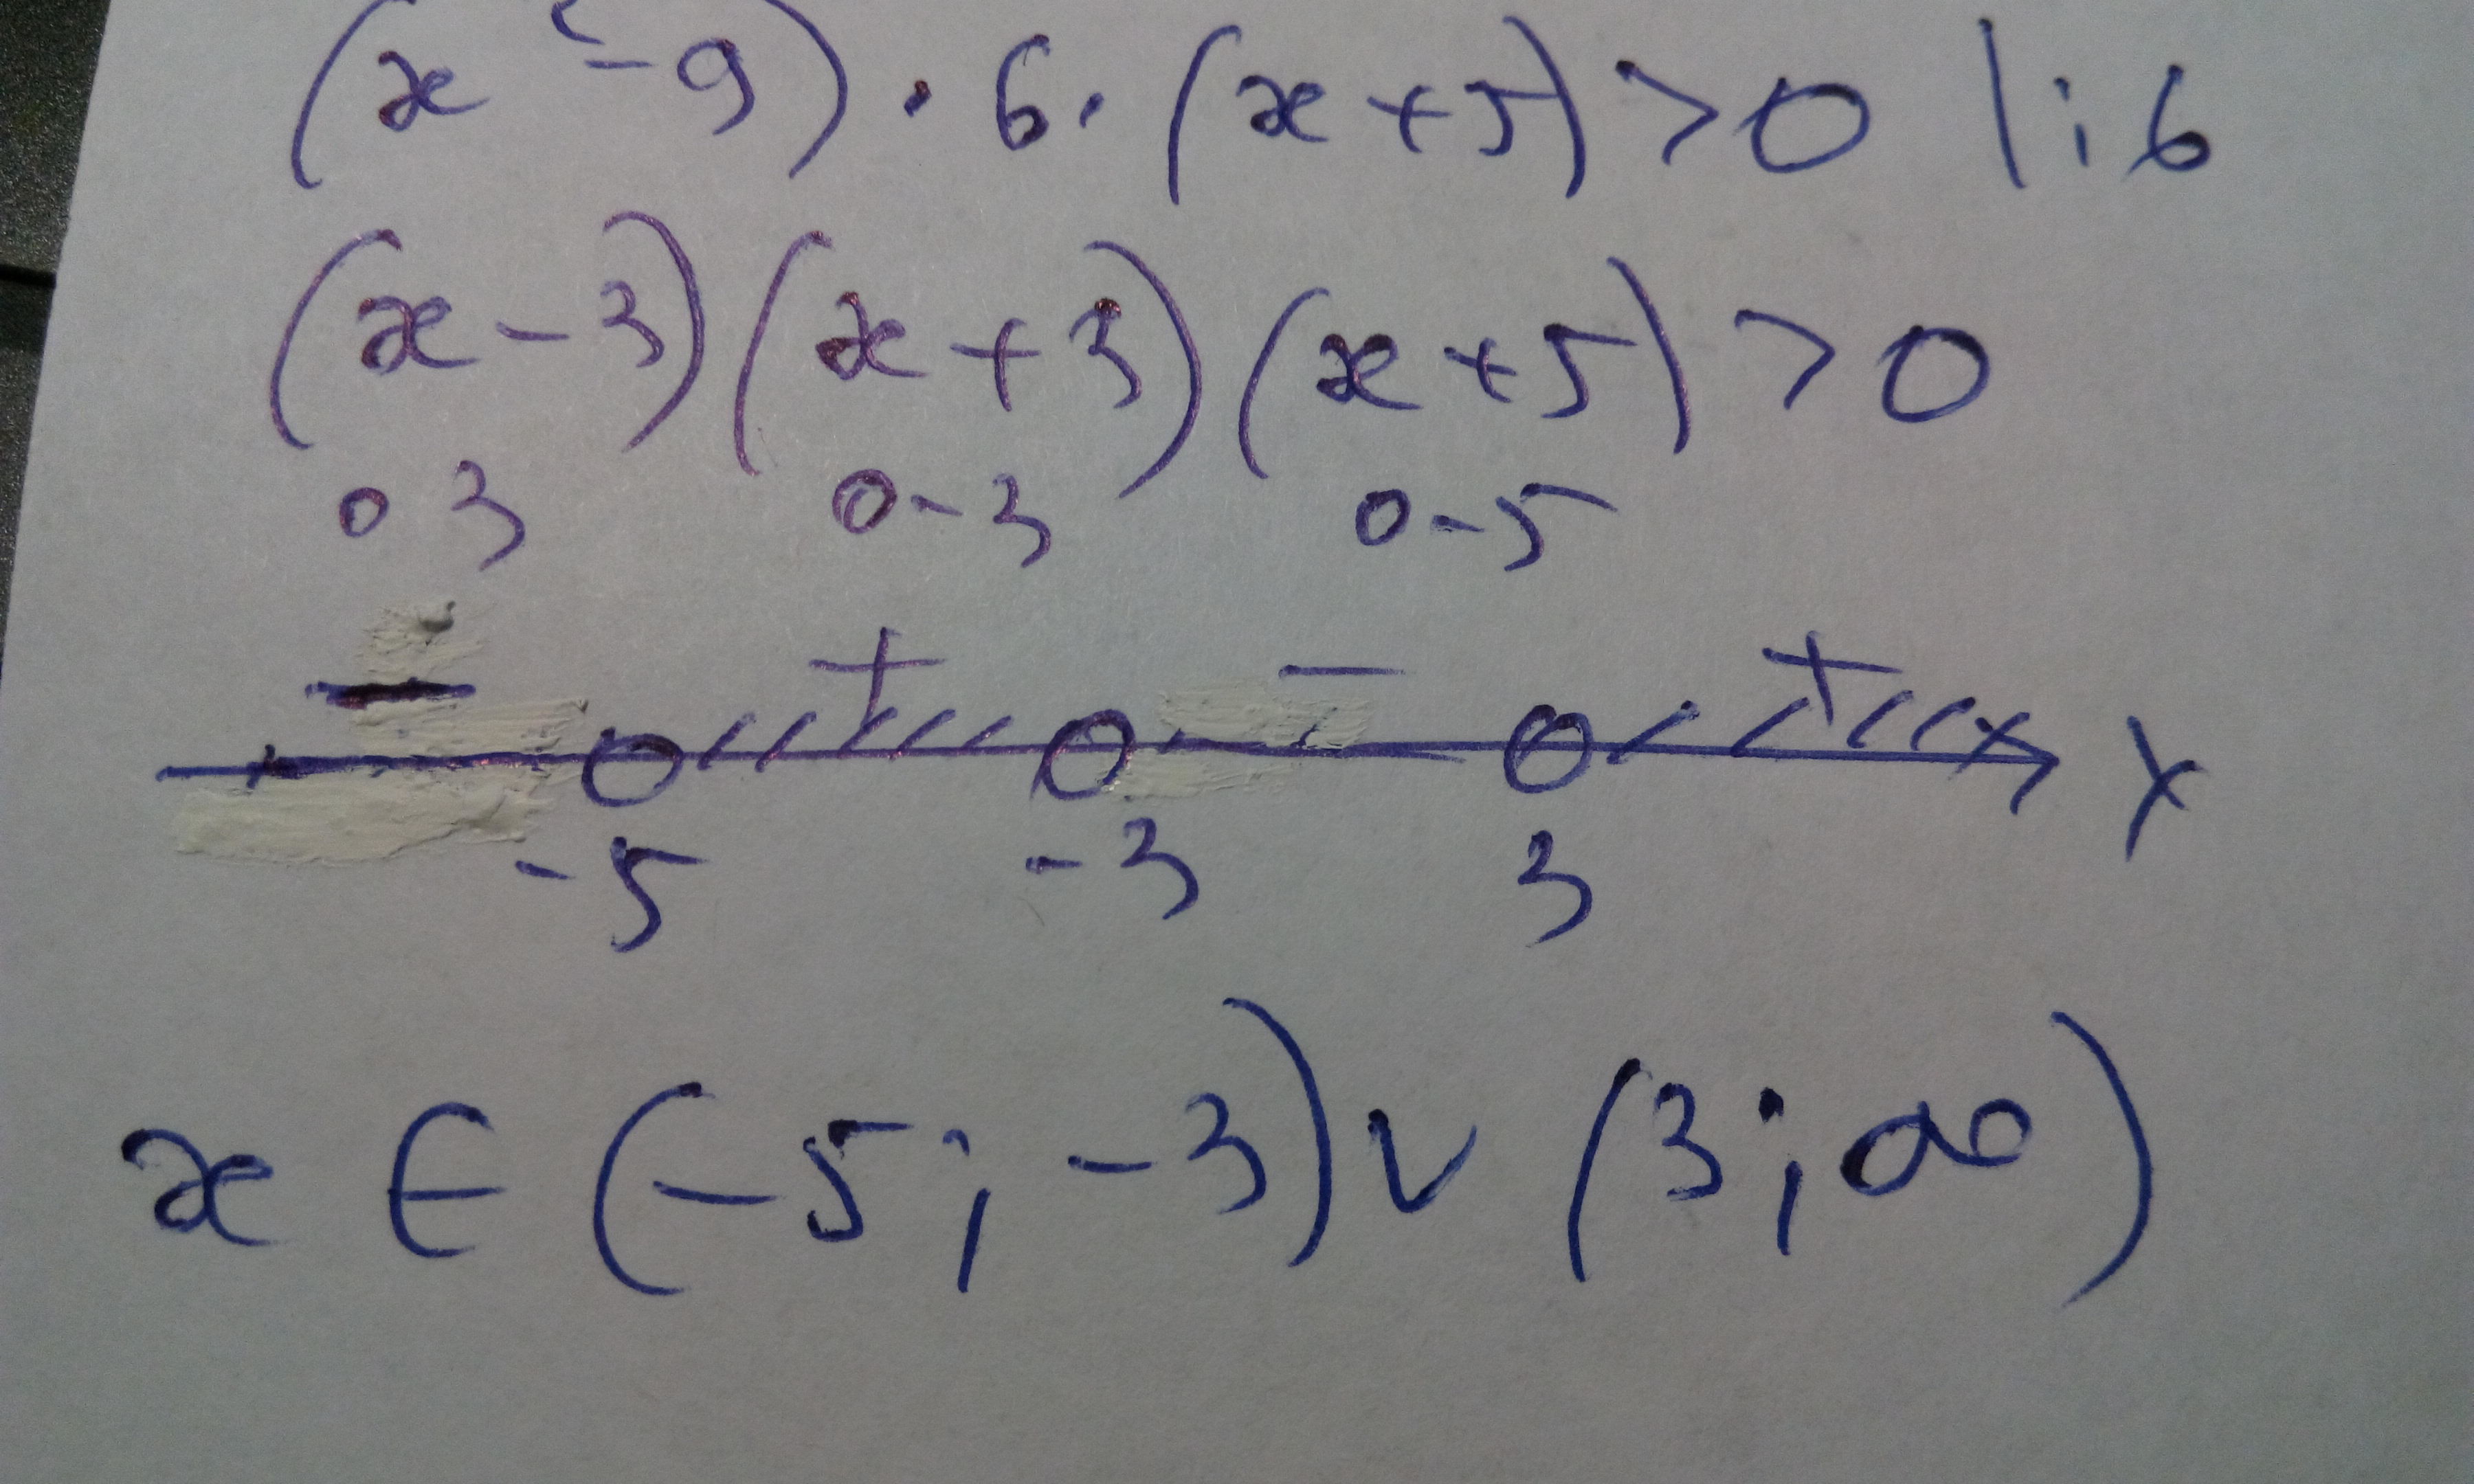 (x²-9)·6·(x+5)>0 |:6
(x-3)(x+3)(x+5)>0
0 3 0-3 0-5
- + - +
-5 -3 3 x
x ∈ (-5; -3) ∨ (3; ∞)